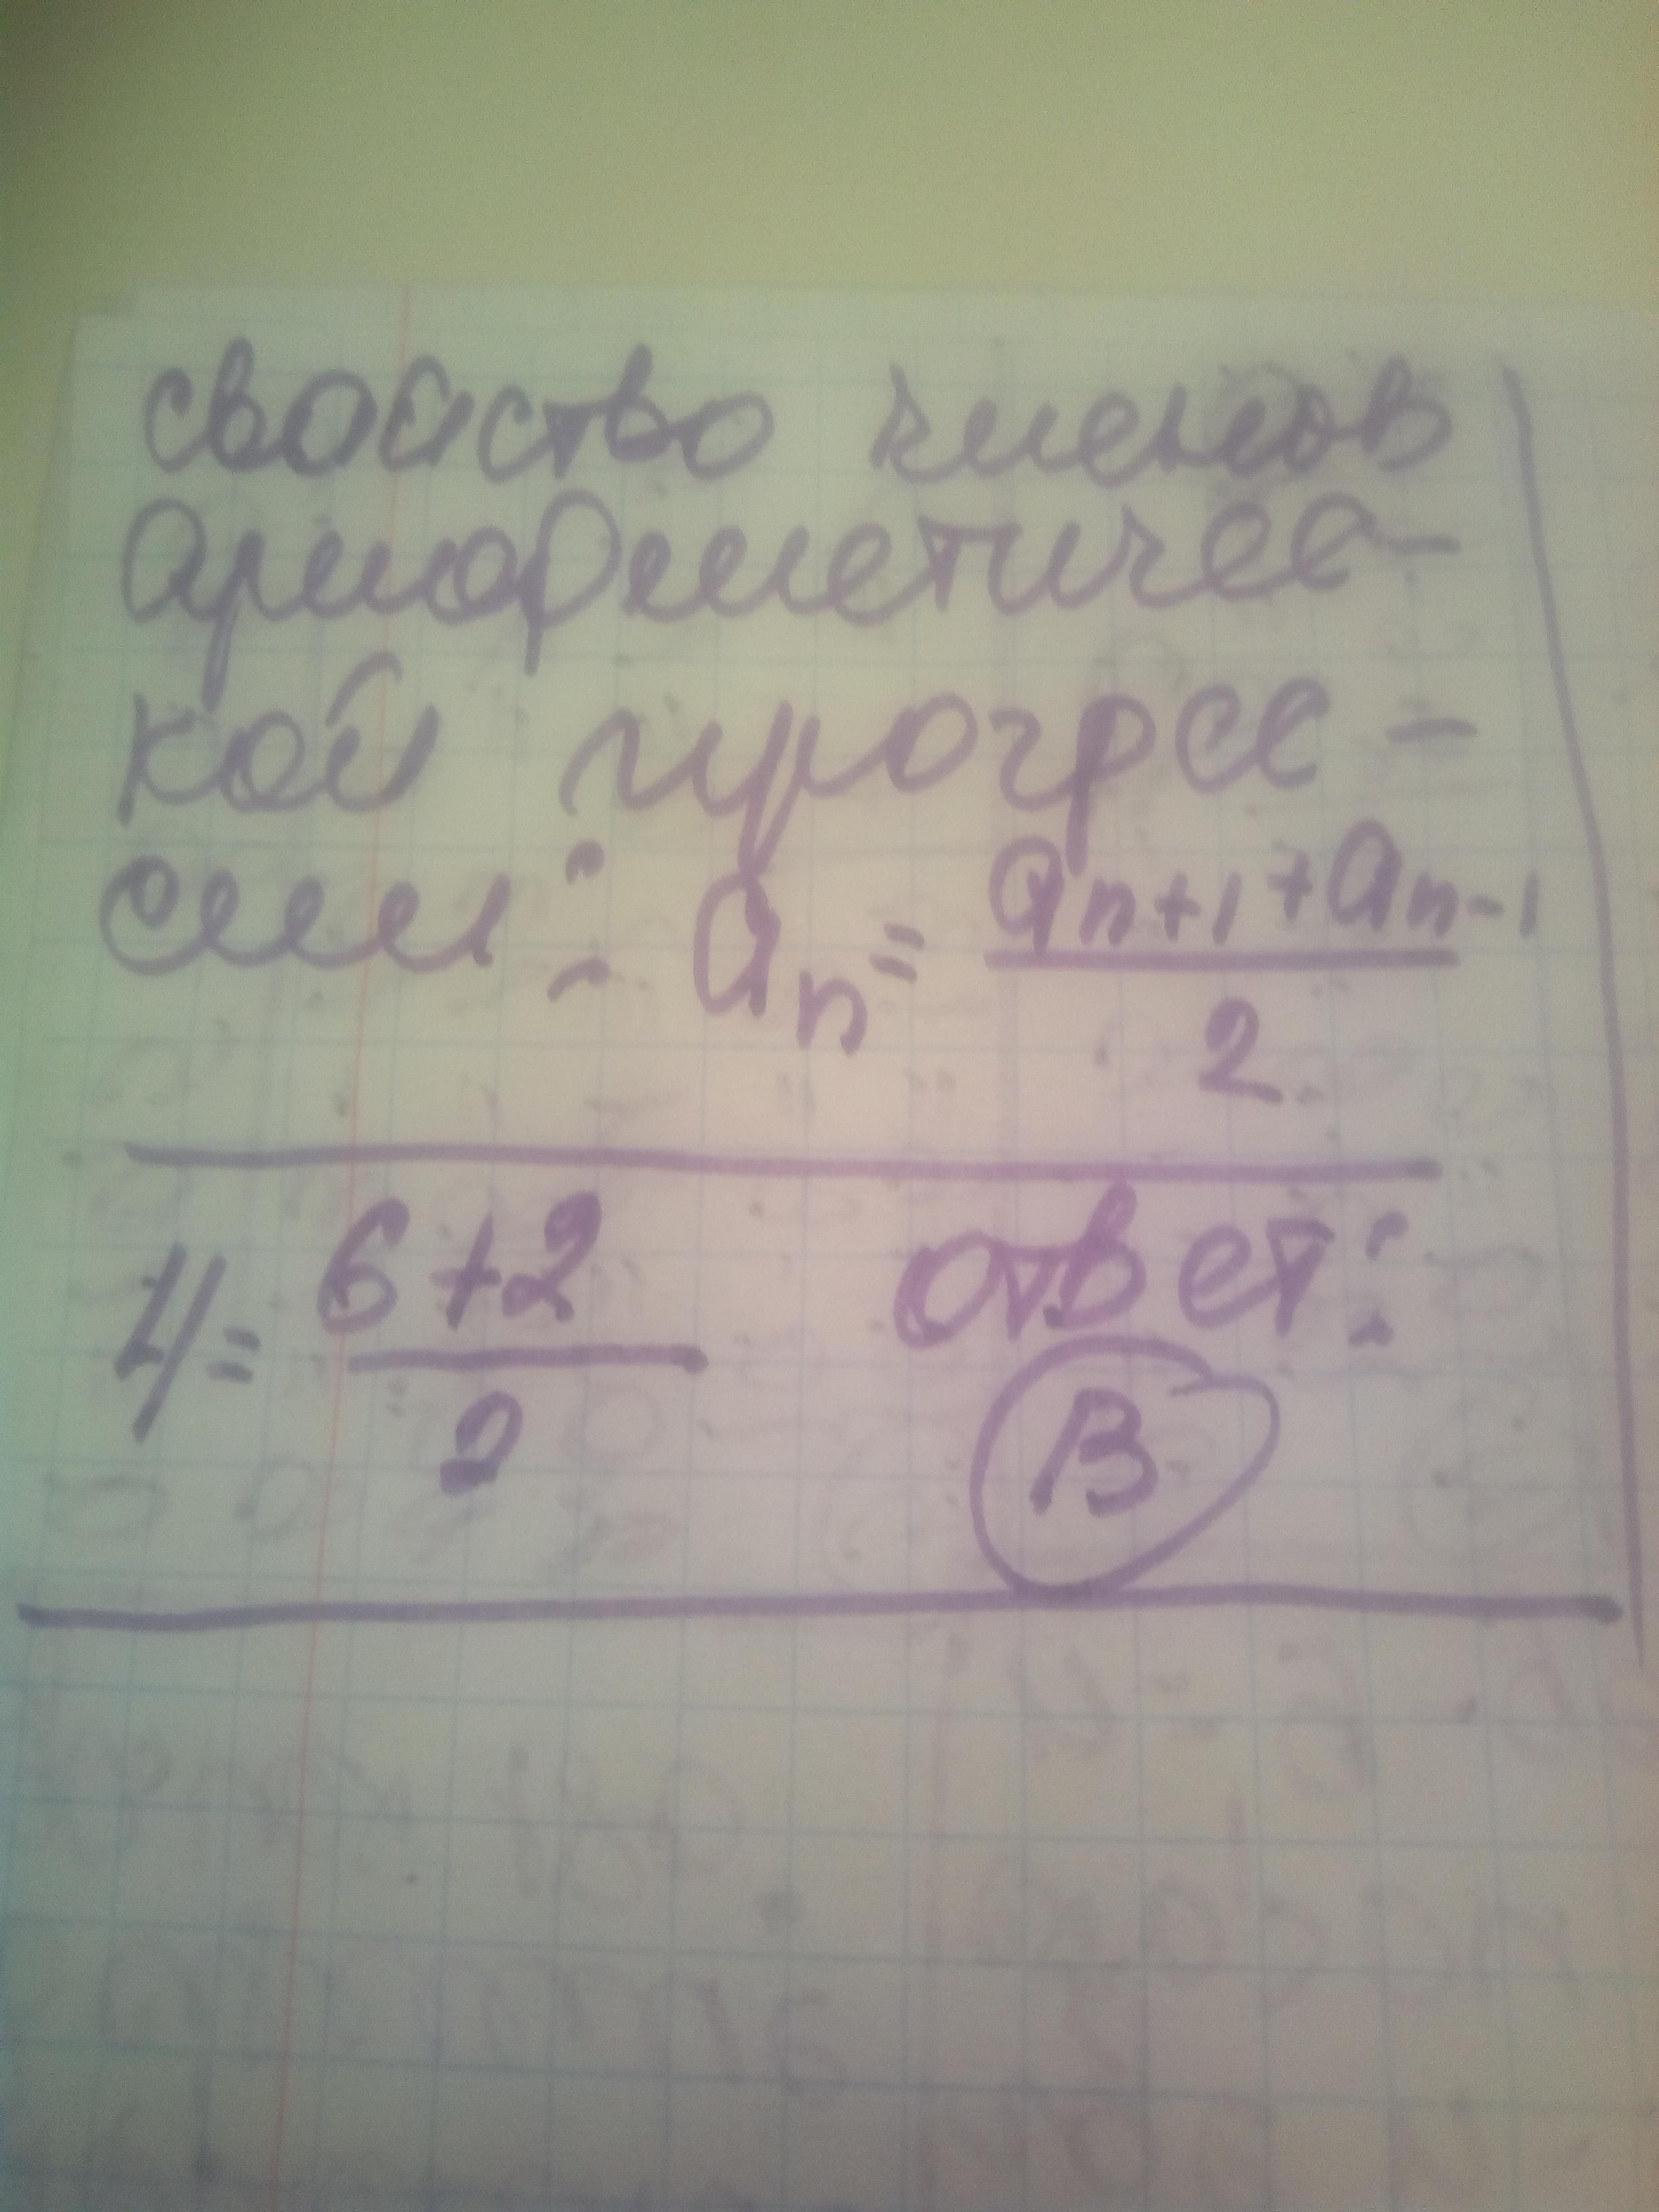 свойство членов
арифметичес-
кой прогрес-
сии: aₙ = (aₙ₊₁ + aₙ₋₁) / 2
4 = (6+2) / 2 ответ:
В